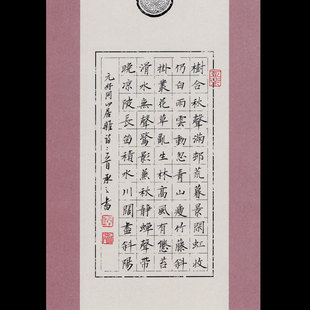 樹合秋聲滿邨荒暮景閑虹收
仍白雨雲動忽青山瘦竹藤斜
掛叢花草亂生林高風有態苔
滑水無聲鷺影兼秋靜蟬聲帶
晚凉陂長留積水川闊盡斜陽
元好问山居雜詩三首承之書